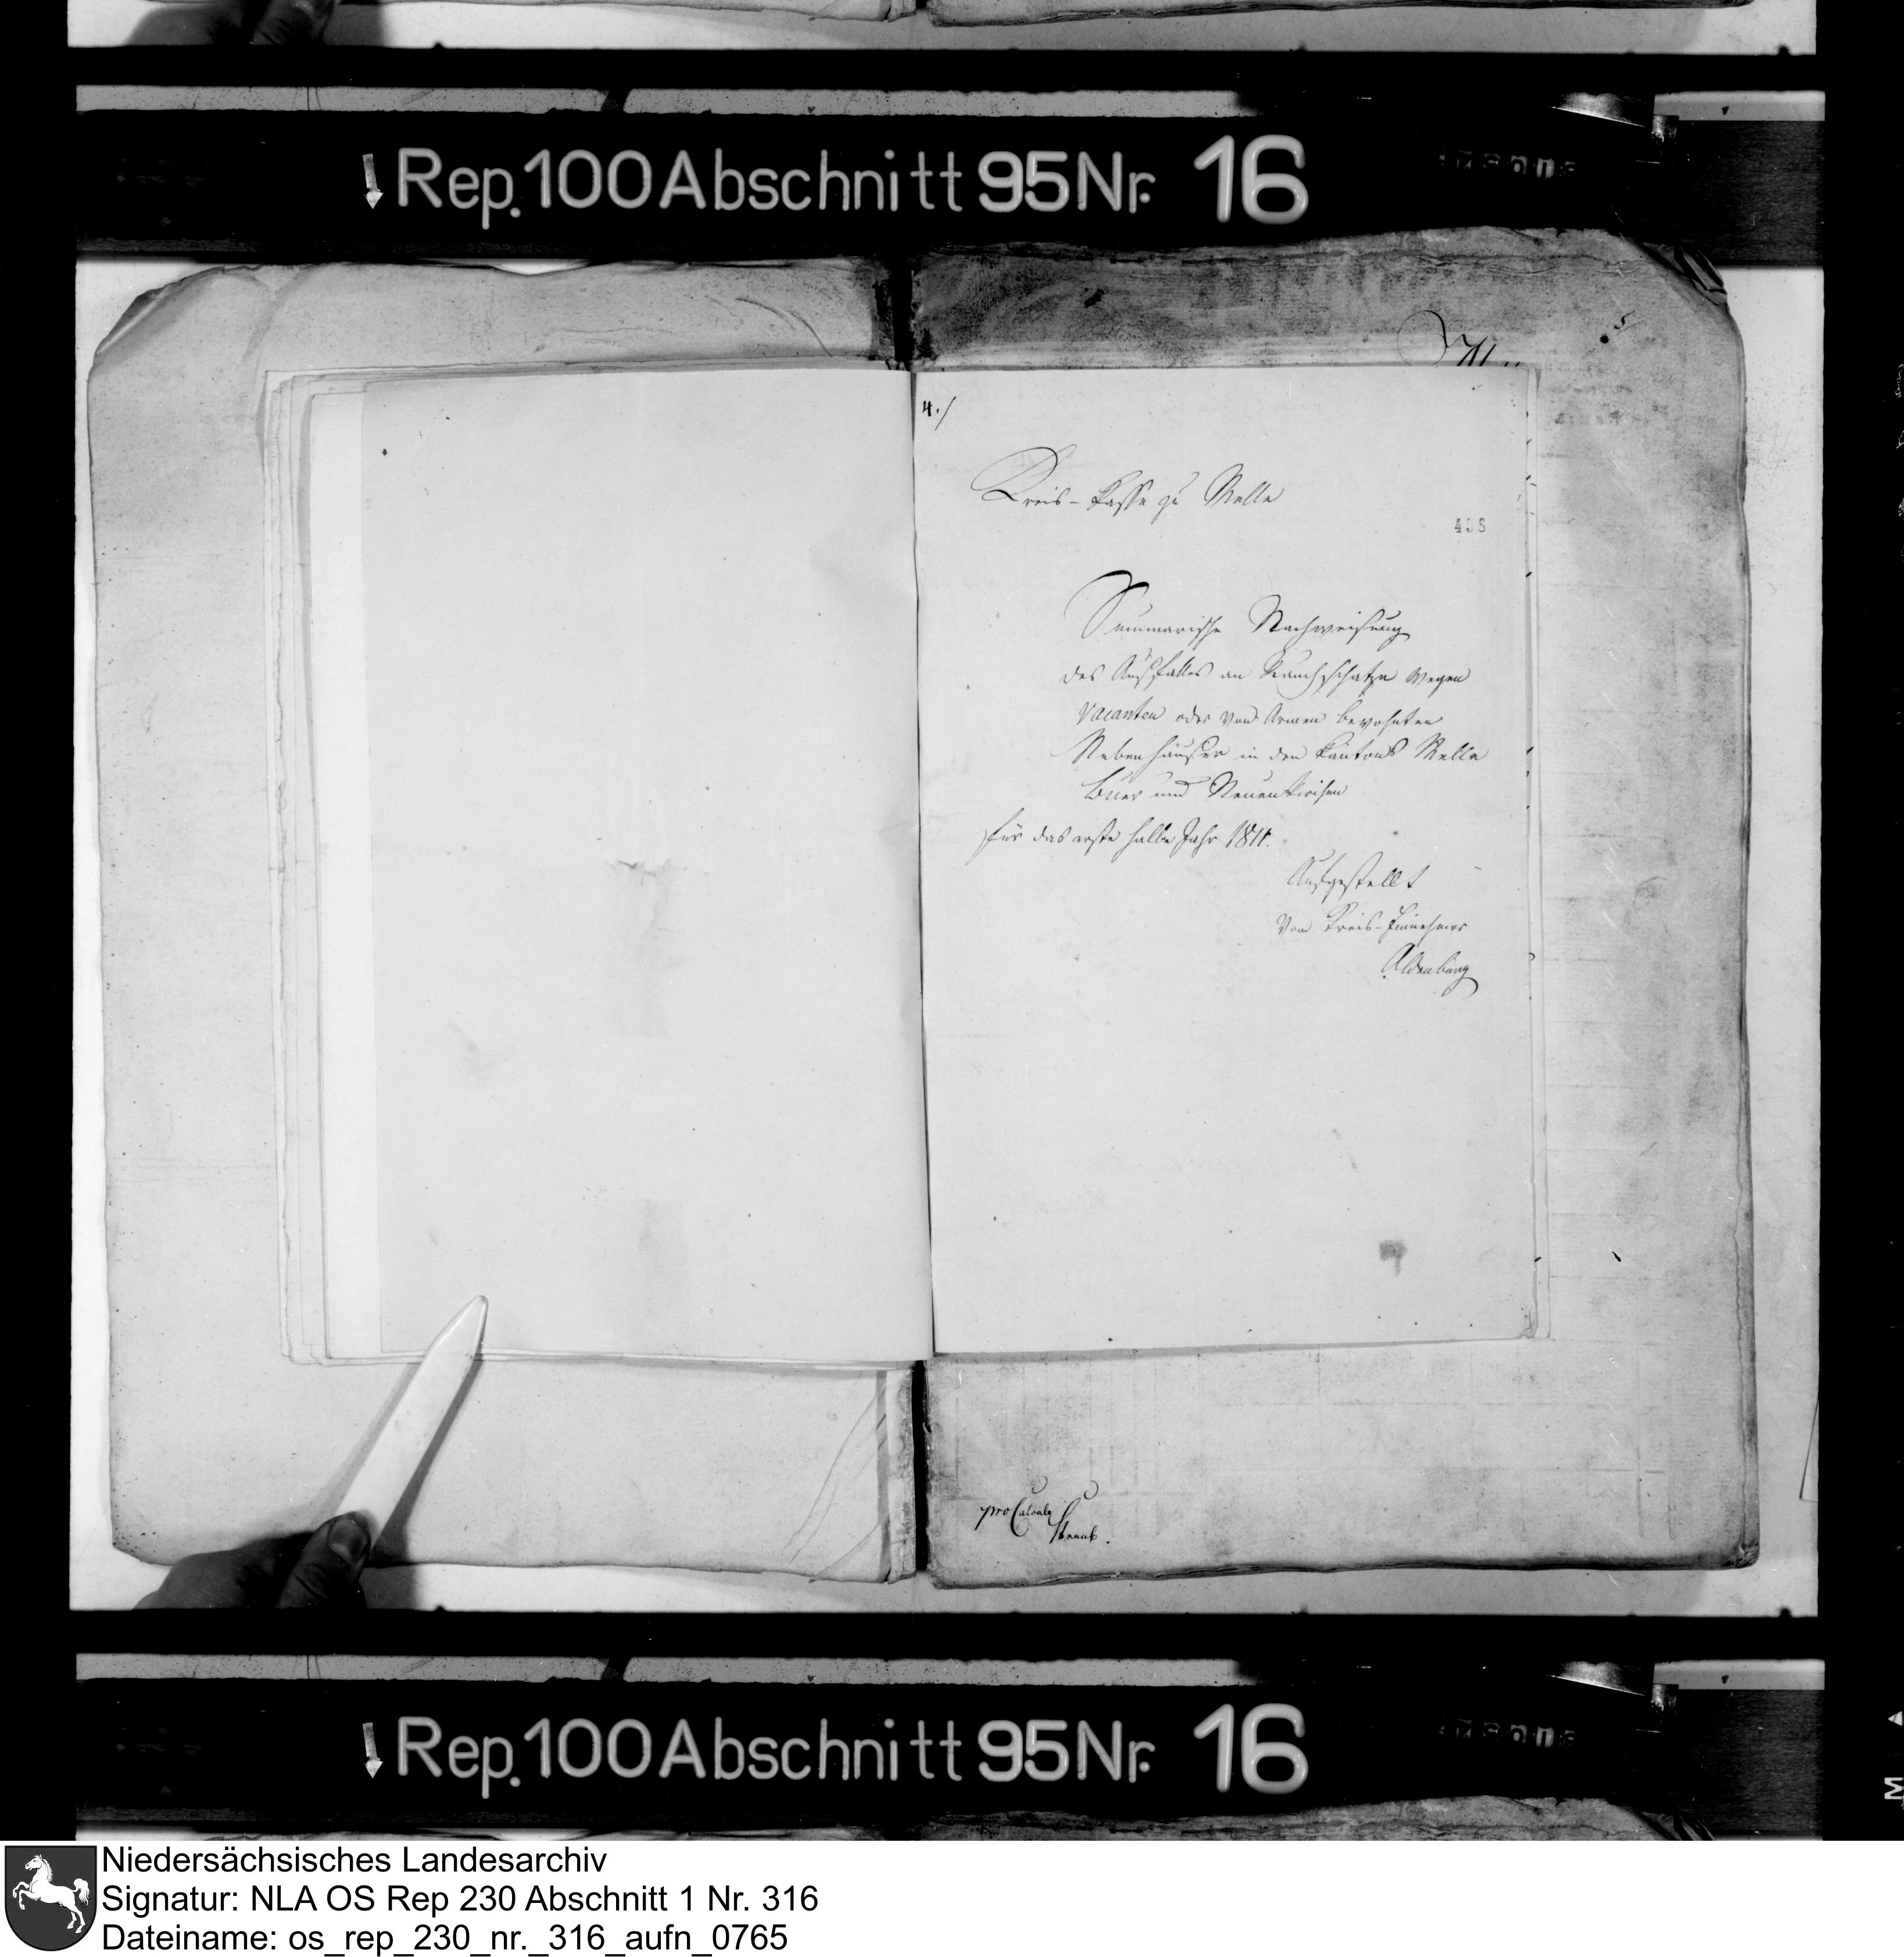 Rep. 100 Abschnitt 95 Nr. 16
5
4./
Kreis-Casse zu Melle
438
Summarische Nachweisung
des Ausfalles an Rauchschatze wegen
vacanten oder von Armen bewohnten
Nebenhäuser in den Cantons Melle
Buer und Neuenkirchen
für das erste halbe Jahr 1811.
Aufgestellt
vom Kreis-Einnehmer
Aldenburg
pro
Rep. 100 Abschnitt 95 Nr. 16
M
Niedersächsisches Landesarchiv
Signatur: NLA OS Rep 230 Abschnitt 1 Nr. 316
Dateiname: os_rep_230_nr._316_aufn_0765